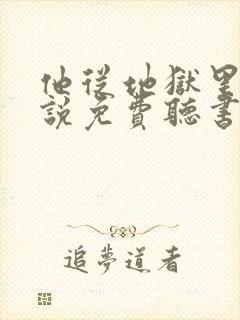 他從地獄里
說免費聽書
追夢道者